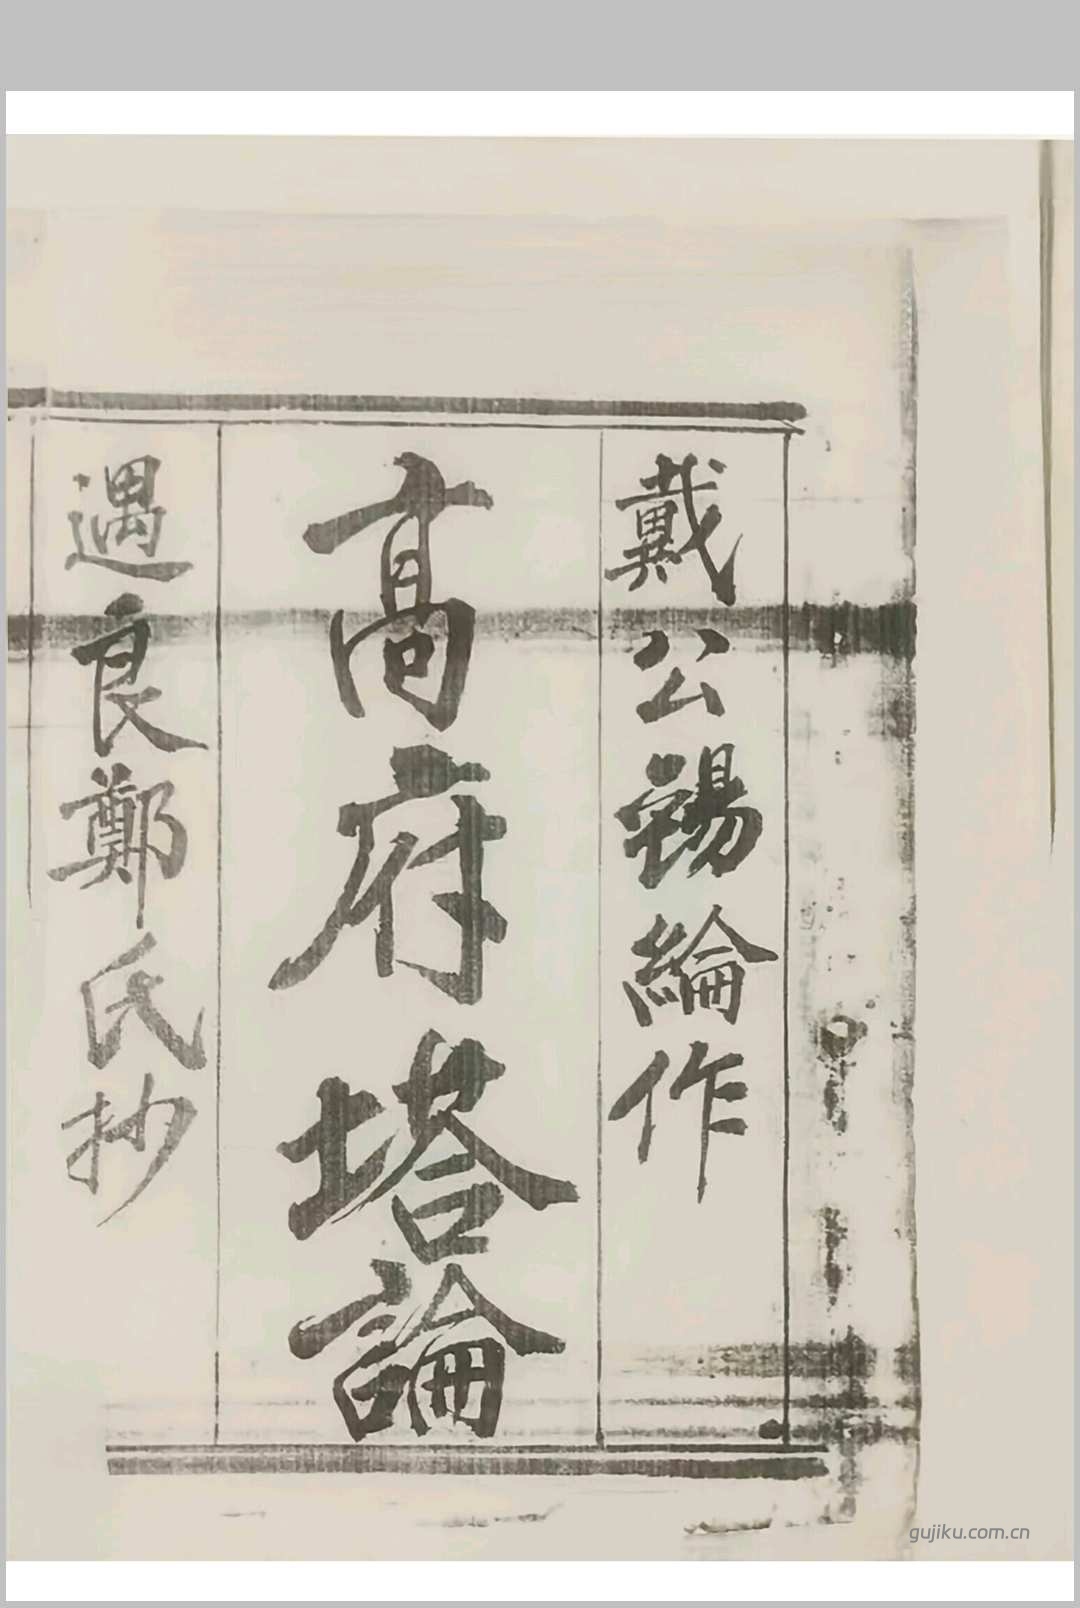 戴公錫綸作
高府塔論
遇良鄭氏抄
gujiku.com.cn